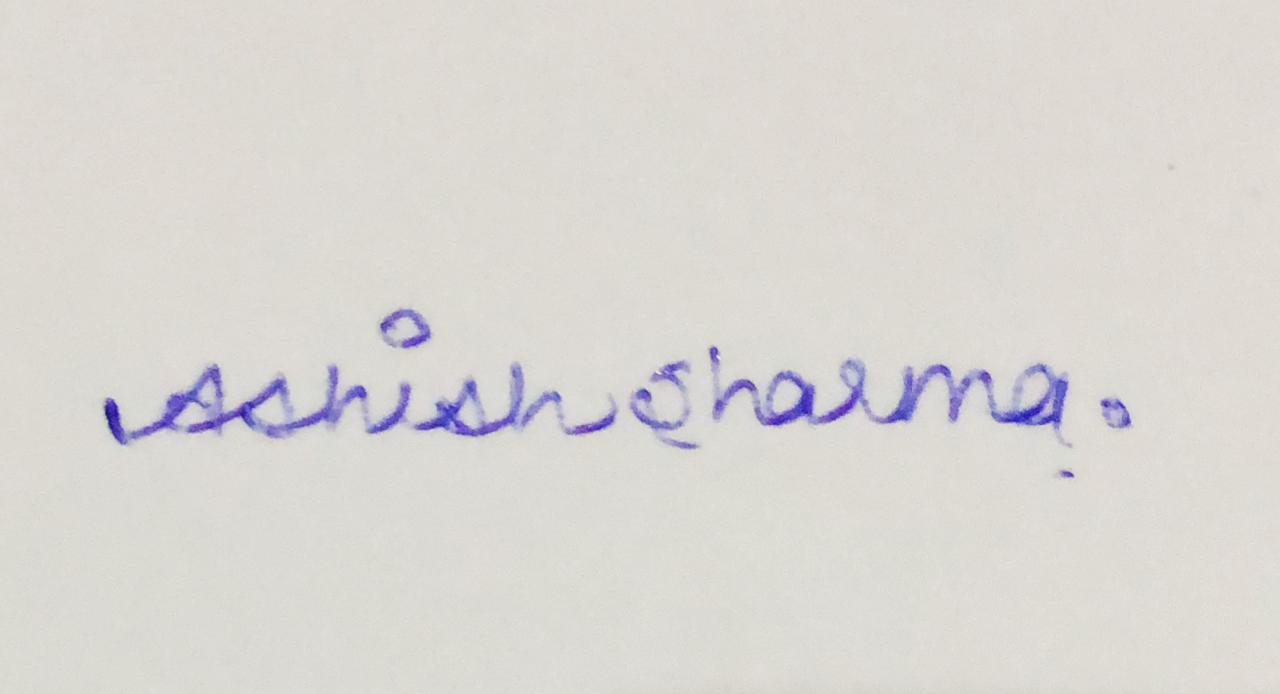 Ashish Sharma.